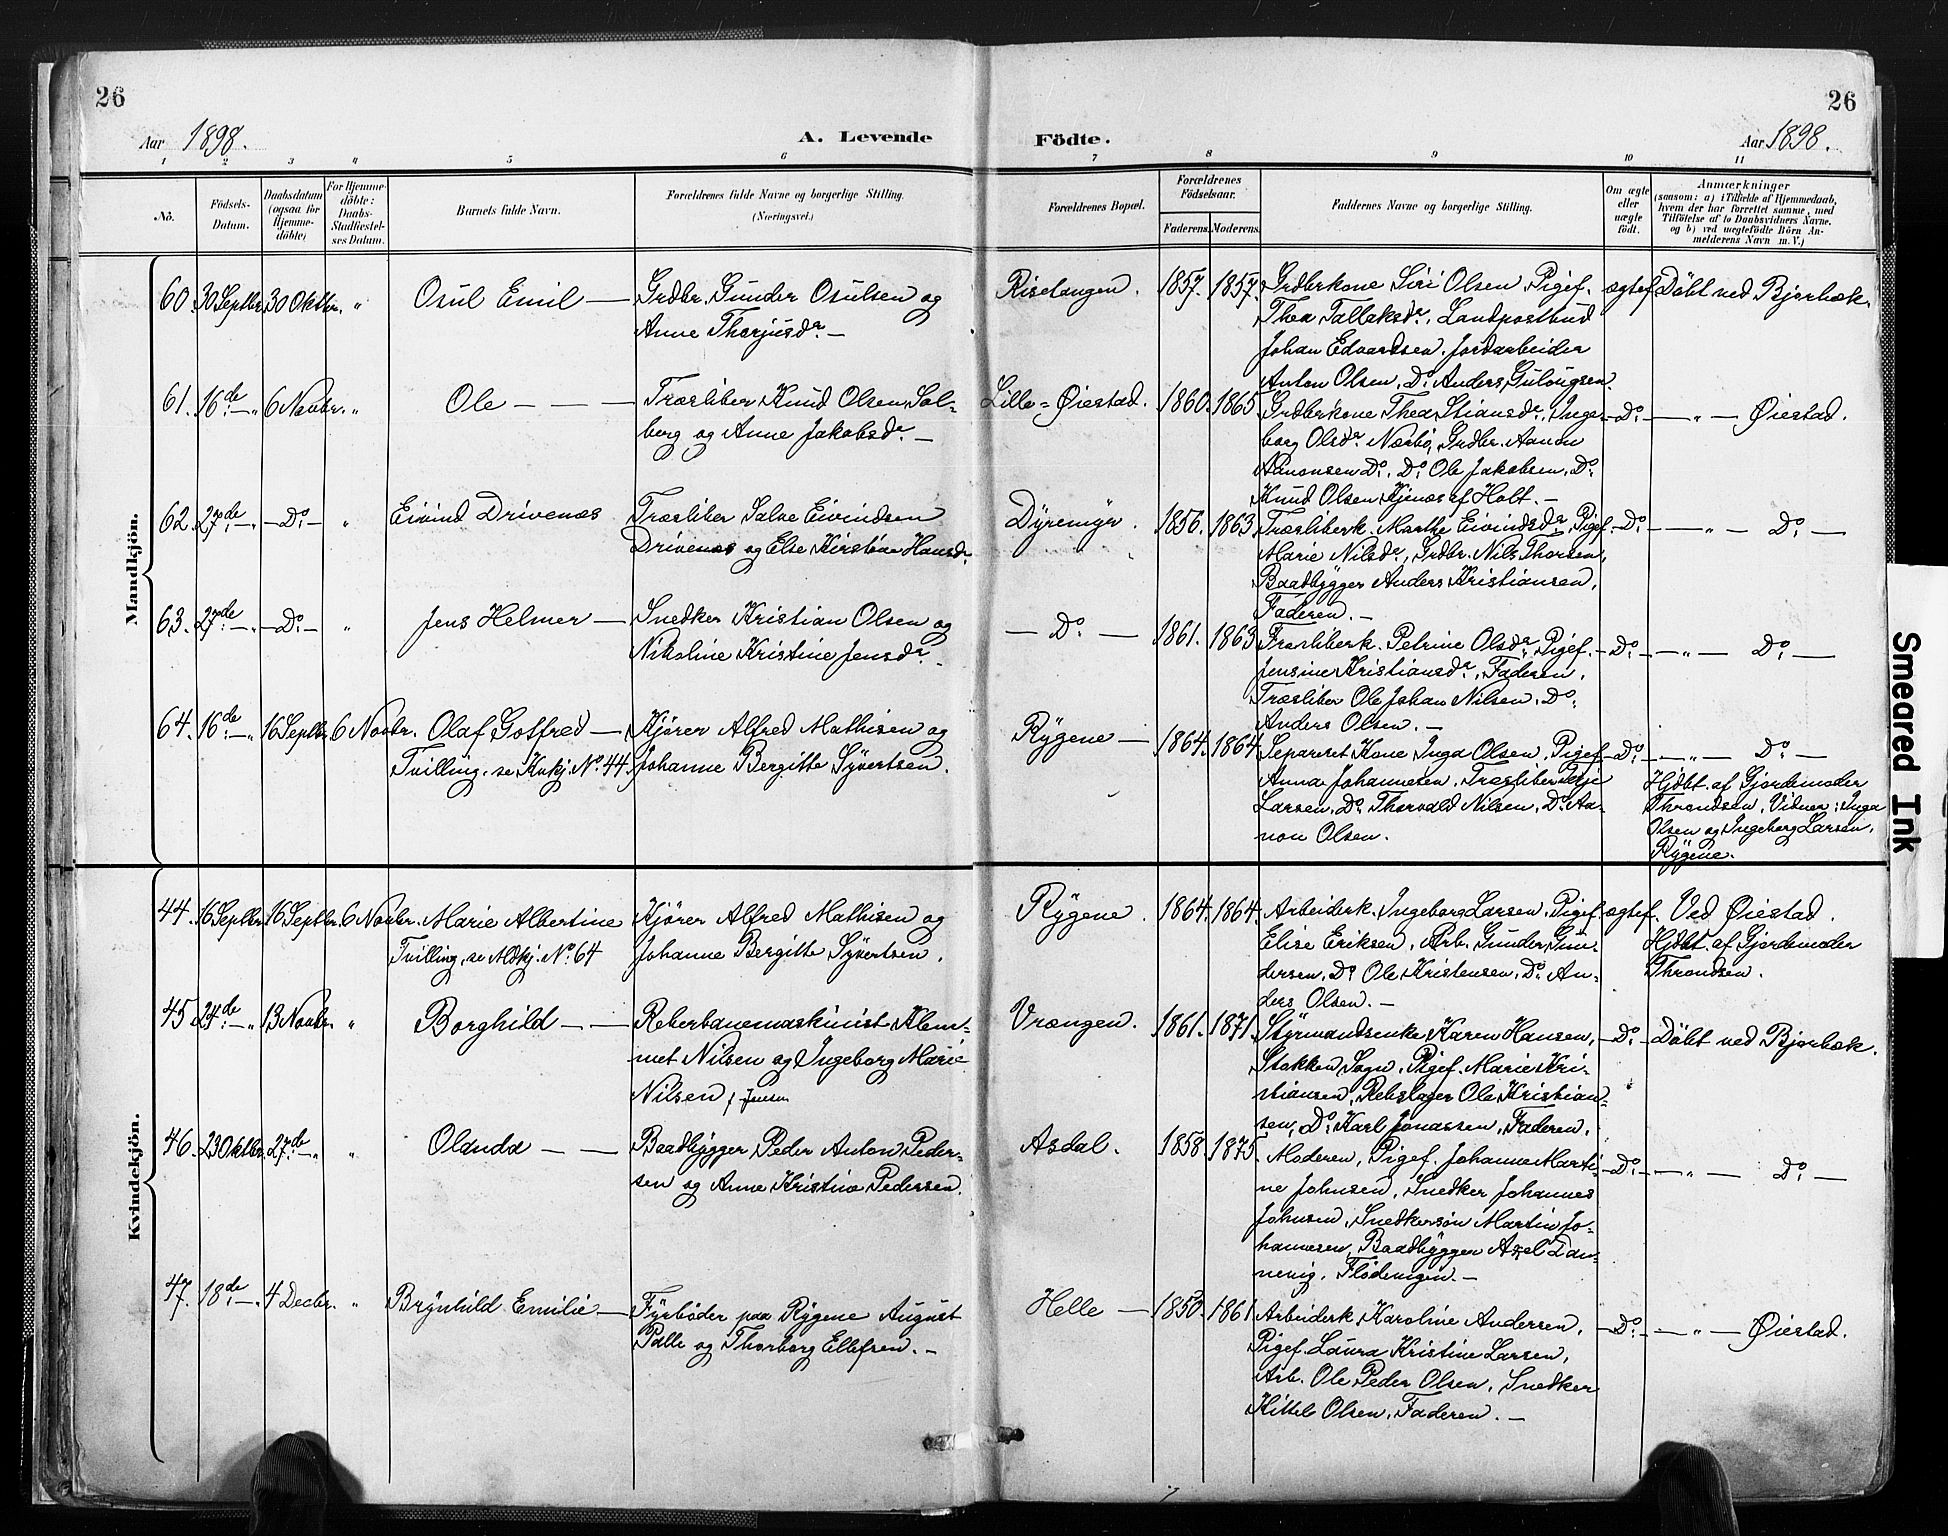 26
26
Aar 1898.
A. Levende
Födte.
Aar 1898.
1 2 3 4 5 6 7 8 9 10 11
No.
Födsels-
Datum.
Daabsdatum
(ogsaa for
Hjemme-
döbte)
For Hjemme-
döbte:
Daabs-
Stadfæstel-
ses Datum.
Barnets fulde Navn.
Forældrenes fulde Navne og borgerlige Stilling.
(Næringsvei.)
Forældrenes Bopæl.
Forældrenes
Födselsaar.
Faderens. Moderens.
Faddernes Navne og borgerlige Stilling.
Om ægte
eller
uægte
födt.
Anmærkninger
(saasom: a) i Tilfælde af Hjemmedaab,
hvem der har forrettet samme, med
Tilföielse af to Daabsvidners Navne.
og b) ved uægtefödte Börn An-
melderens Navn m. V.)
Mandkjön.
60. 30 Septbr. 30 Oktbr. "
Osul Emil —
Grdbr. Gunder Osulsen og
Anne Thorjusdr. —
Risetangen.
1857. 1857.
Grdbrkone Siri Olsen, Pigef.
Thea Tallaksdr., Landpostbud
Johan Edvardsen, Jordarbeider
Anton Olsen, Do. Anders Gulougsen.
ægtef.
Döbt ved Bjorbæk.
61. 16de — " 6 Novbr. "
Ole — — —
Træsliber Knud Olsen Sol-
berg og Anne Jakobsdr. —
Lille-Øiestad.
1860. 1865.
Grdbrkone Thea Stiansdr., Inge-
borg Olsdr. Næsbø, Grdbr. Aanon
Aanonsen Do., Do. Ole Jakobsen, Do.
Knud Olsen Kjenæs af Holt. —
— Do. —
— " — Øiestad.
62. 27de — " — Do. — "
Eivind Drivenæs
Træsliber Salve Eivindsen
Drivenæs og Else Kirstine Hansdr.
Dÿremÿr.
1856. 1863.
Træsliberk. Marthe Eivindsdr., Pigef.
Marie Nilsdr., Grdbr. Nils Thorsen,
Baadbÿgger Anders Kristiansen,
Faderen. —
— Do. —
— " — Do. —
63. 27de — " — Do. — "
Jens Helmer —
Snedker Kristian Olsen og
Nikoline Kristine Jensdr. —
— Do. —
1861. 1863.
Træsliberk. Petrine Olsdr., Pigef.
Jensine Kristiansdr., Faderen,
Træsliber Ole Johan Nilsen, Do.
Anders Olsen. —
— Do. —
— " — Do. —
64. 16de — " 16 Septbr. 6 Novbr.
Olaf Gotfred —
Tvilling, se Kvkj. No. 44.
Kjører Alfred Mathisen og
Johanne Bergitte Sÿvertsen.
Rÿgene —
1864. 1864.
Separeret Kone Inga Olsen, Pigef.
Anna Johannesen, Træsliber Terje
Larsen, Do. Thorvald Nilsen, Do. Aa-
non Olsen.
— Do. —
— " — Do. —
Hjdbt. af Gjordemoder
Throndsen, Vidner: Inga
Olsen og Ingeborg Larsen,
Rÿgene.
Kvindekjön.
44. 16 Septbr. 16 Septbr. 6 Novbr.
Marie Albertine
Tvilling, se Mdkj. No. 64
Kjører Alfred Mathisen og
Johanne Bergitte Sÿvertsen.
Rÿgene.
1864. 1864.
Arbeiderk. Ingeborg Larsen, Pigef.
Elise Eriksen, Arb. Gunder Gun-
dersen, Do. Ole Kristensen, Do. An-
ders Olsen. —
ægtef.
Ved Øiestad.
Hjdbt. af Gjordemoder
Throndsen.
45. 24de — " 13 Novbr. "
Borghild — —
Reberbanemaskinist Klem-
met Nilsen og Ingeborg Marie
Nilsen f. Jensen
Vrængen.
1861. 1871.
Stÿrmandsenke Karen Hansen,
Stokken Sogn, Pigef. Marie Kri-
stiansen, Rebslager Ole Kristian-
sen, Do. Karl Jonassen, Faderen.
— Do. —
Döbt ved Bjorbæk.
46. 23 Oktbr. 27de — " "
Olanda — —
Baadbÿgger Peder Anton Peder-
sen og Anne Kristine Pedersen.
Asdal.
1858. 1875.
Moderen, Pigef. Johanne Marti-
ne Johnsen, Snedker Johannes
Johnsen, Snedkersøn Martin Jo-
hannesen, Baadbÿgger Axel Dan-
nevig, Flødevigen. —
— Do. —
— " — Do. —
47. 18de — " 4 Decbr. "
Brÿnhild Emilie —
Fÿrbøder paa Rÿgene August
Palle og Thorborg Ellefsen. —
Helle —
1850. 1861.
Arbeiderk. Karoline Andersen,
Pigef. Laura Kristine Larsen,
Arb. Ole Peder Olsen, Snedker
Kittel Olsen, Faderen. —
— Do. —
— " — Øiestad.
Smeared Ink